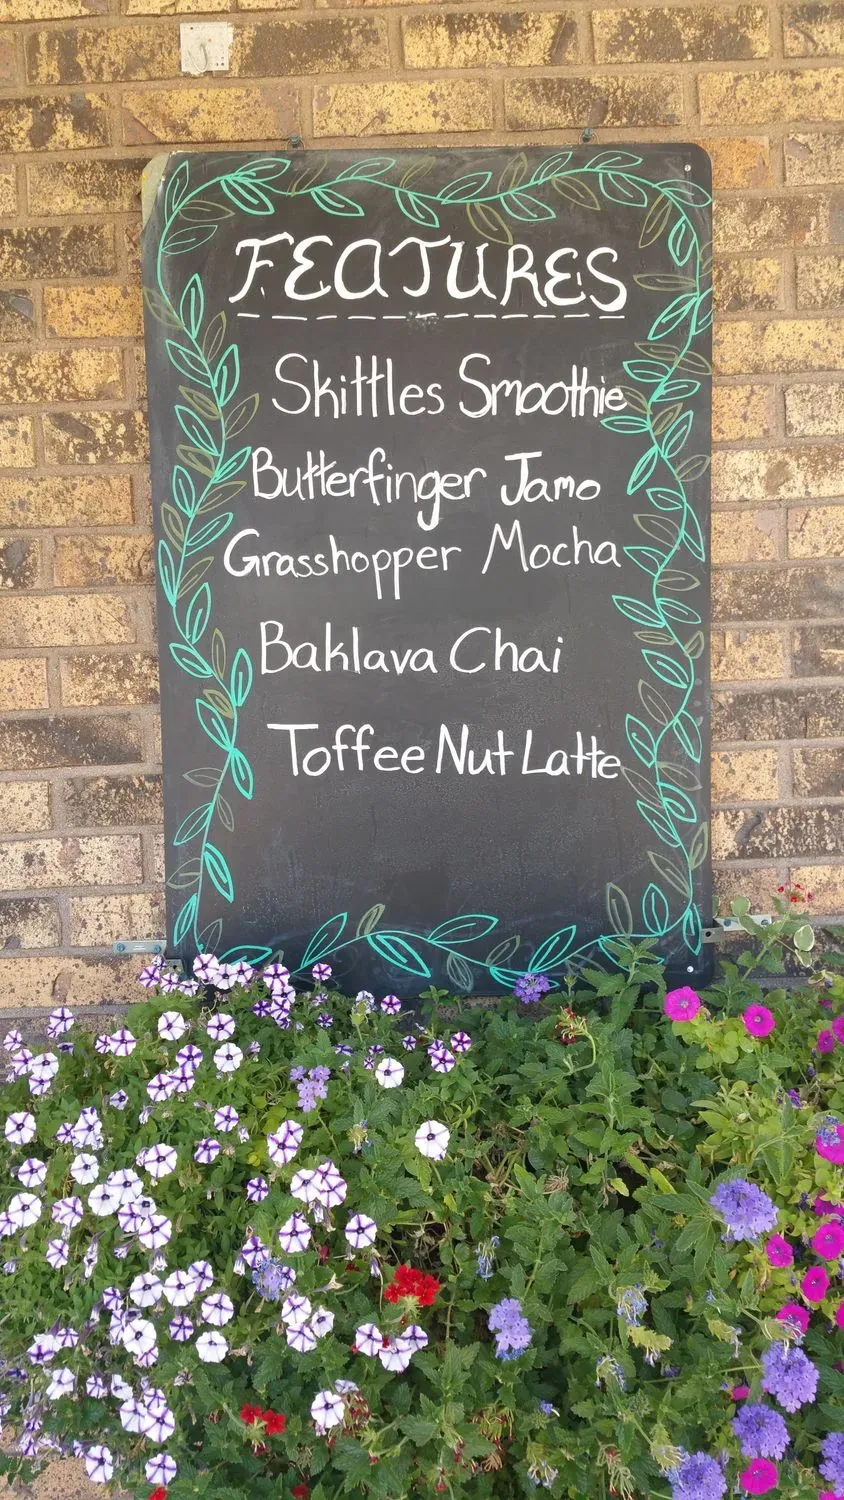 FEATURES
Skittles Smoothie
Butterfinger Jamo
Grasshopper Mocha
Baklava Chai
Toffee Nut Latte